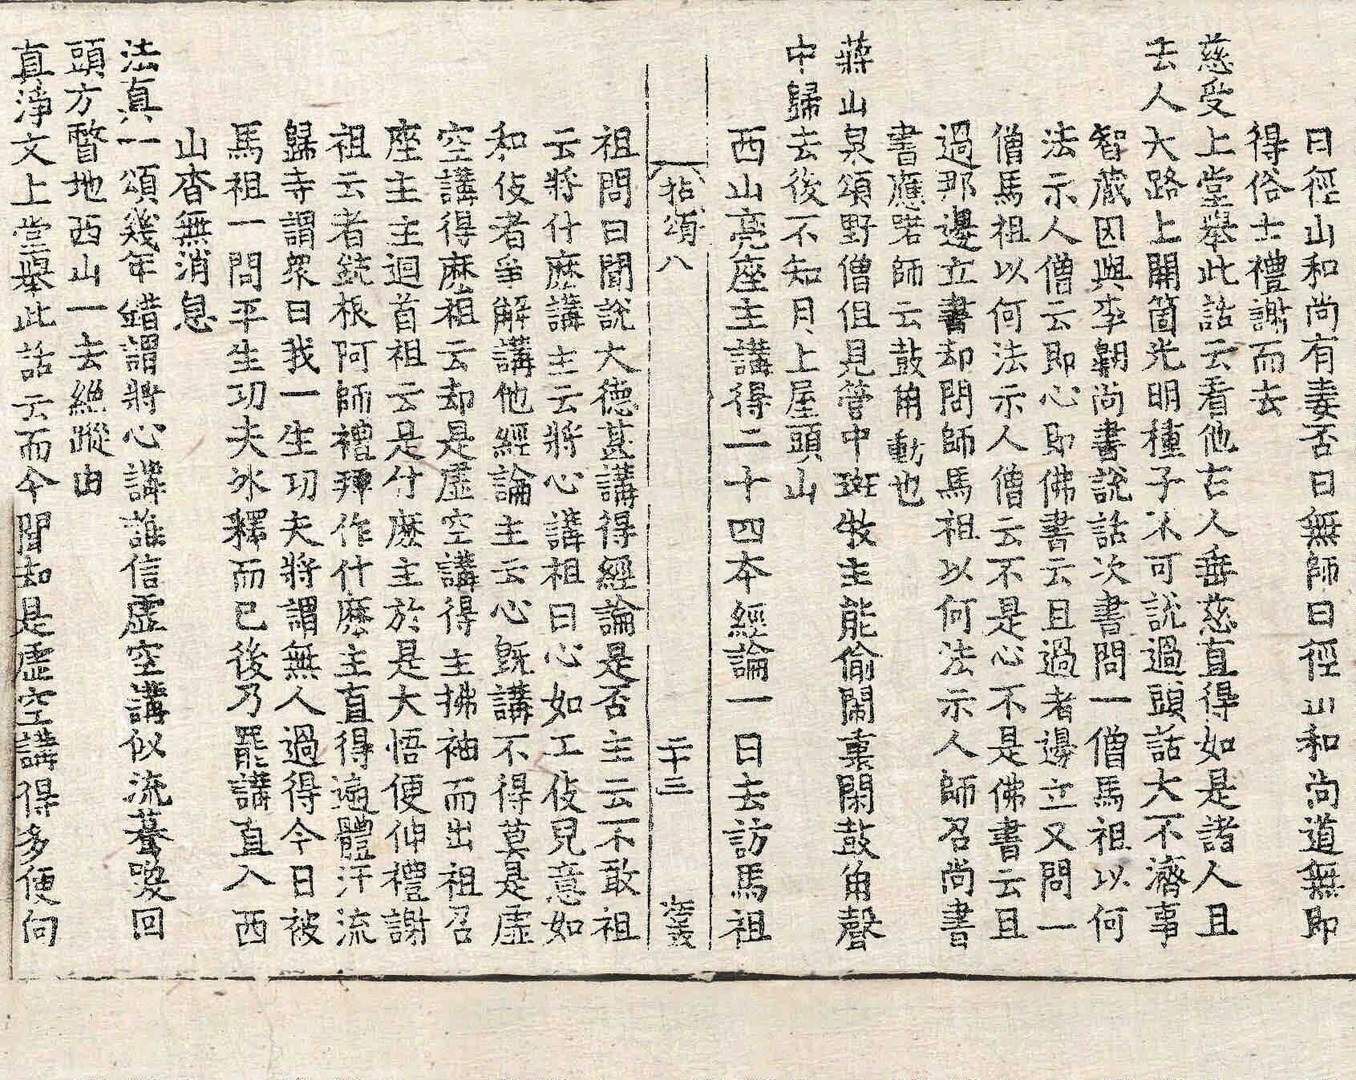 曰徑山和尚有妻否曰無師曰徑山和尚道無即
得俗士禮謝而去
慈受上堂舉此話云看他古人垂慈直得如是諸人且
去人大路上開箇光明種子不可說過頭話大不濟事
智藏因與李翱尚書說話次書問一僧馬祖以何
法示人僧云即心即佛書云且過者邊立又問一
僧馬祖以何法示人僧云不是心不是佛書云且
過那邊立書却問師馬祖以何法示人師召尚書
書應喏師云鼓角動也
蔣山泉頌野僧但見管中斑牧主能偷鬧裏閑鼓角聲
中歸去後不知月上屋頭山
西山亮座主講得二十四本經論一日去訪馬祖
拈頌八 二十三
祖問曰聞說大德甚講得經論是否主云不敢祖
云將什麽講主云將心講祖曰心如工伎兒意如
和伎者爭解講他經論主云心旣講不得莫是虛
空講得麽祖云却是虛空講得主拂袖而出祖召
座主主迴首祖云是什麽主於是大悟便伸禮謝
祖云者鈍根阿師禮拜作什麽主直得遍體汗流
歸寺謂衆曰我一生功夫將謂無人過得今日被
馬祖一問平生功夫氷釋而已後乃罷講直入西
山杳無消息
法真一頌幾年錯謂將心講誰信虛空講似流驀喚回
頭方瞥地西山一去絕蹤由
真淨文上堂舉此話云而今聞却是虛空講得多便向